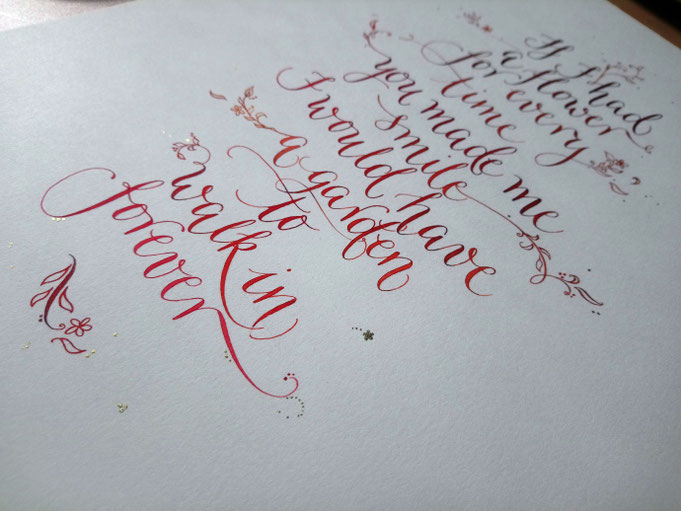 If I had
a flower
for every
time
you made me
smile
I would have
a garden
to
walk in
forever